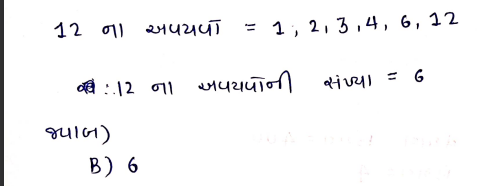 12 ના અવયવો = 1, 2, 3, 4, 6, 12
∴ 12 ના અવયવોની સંખ્યા = 6
જવાબ)
B) 6